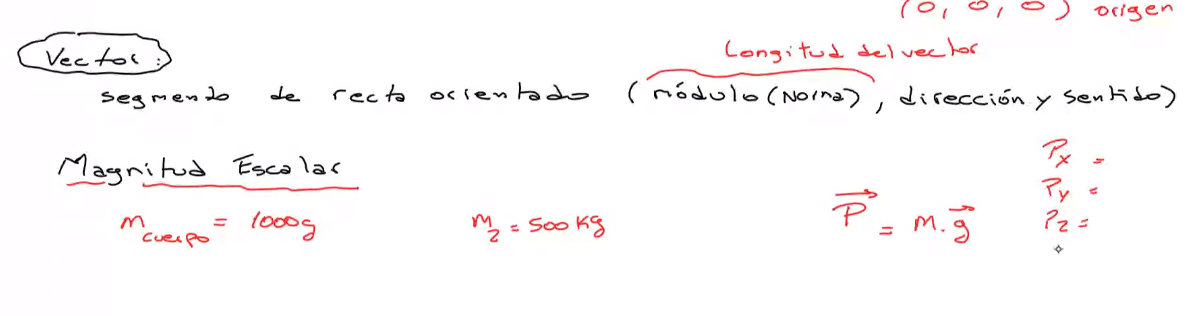 (0, 0, 0) origen
Longitud del vector
Vector:
segmento de recta orientado (módulo (Norma), dirección y sentido)
Magnitud Escalar
m cuerpo = 1000g
m2 = 500 Kg
P⃗ = m.g⃗
Px =
Py =
Pz =